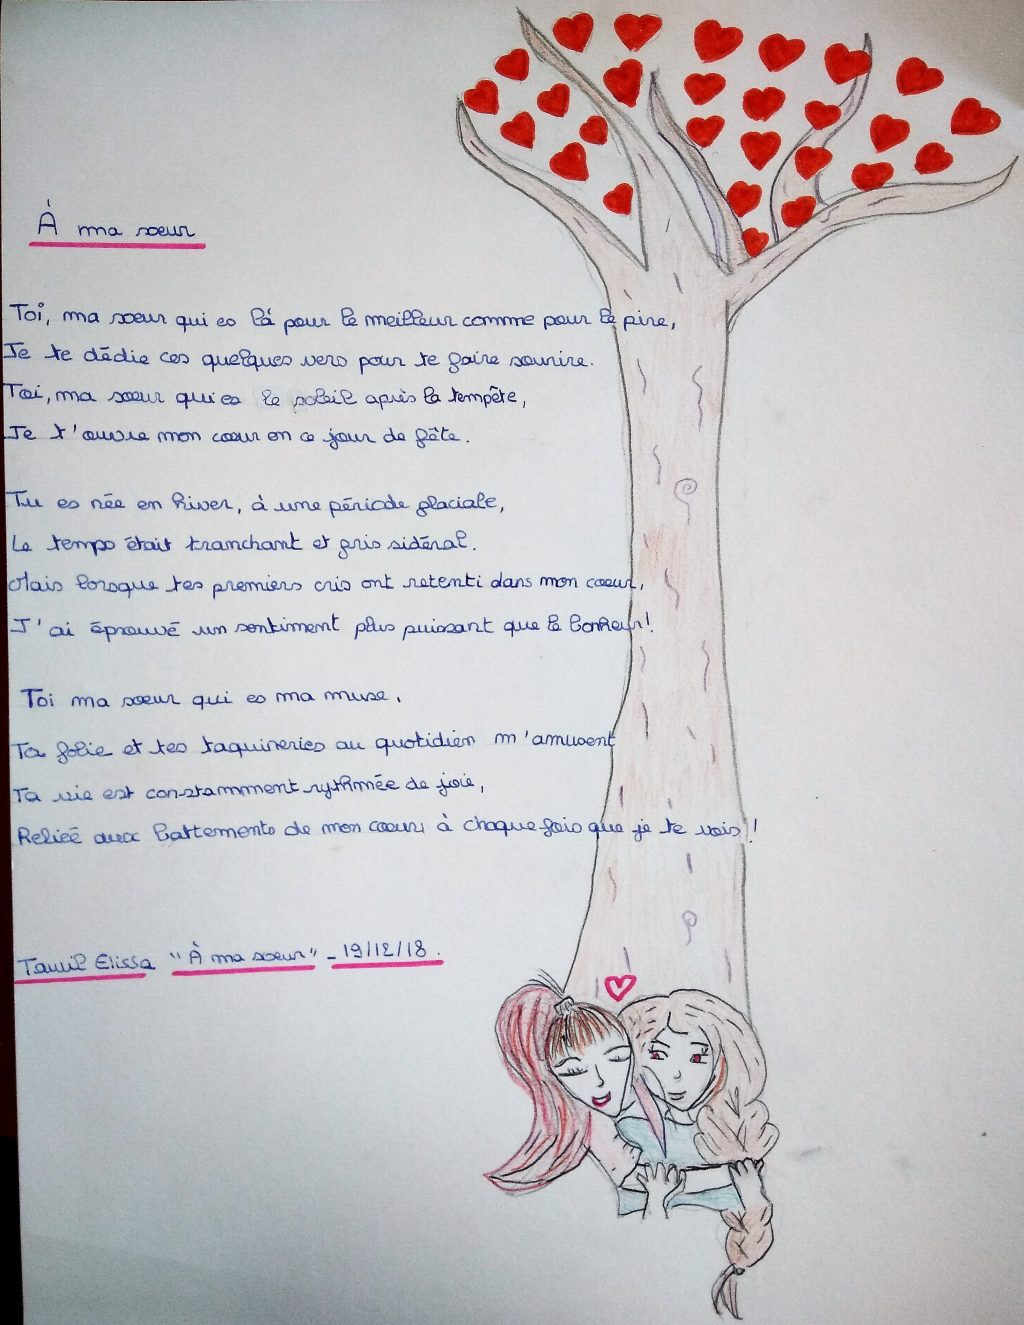 À ma sœur
Toi, ma sœur qui es là pour le meilleur comme pour le pire,
Je te dédie ces quelques vers pour te faire sourire.
Toi, ma sœur qui es le soleil après la tempête,
Je t'ouvre mon cœur en ce jour de fête.
Tu es née en hiver, à une période glaciale,
Le temps était tranchant et gris sidéral.
Mais lorsque tes premiers cris ont retenti dans mon cœur,
J'ai éprouvé un sentiment plus puissant que le bonheur!
Toi ma sœur qui es ma muse,
Ta folie et tes taquineries au quotidien m'amusent
Ta vie est constamment rythmée de joie,
Reliée aux battements de mon cœur à chaque fois que je te vois !
Elissa "À ma sœur" - 19/12/18.